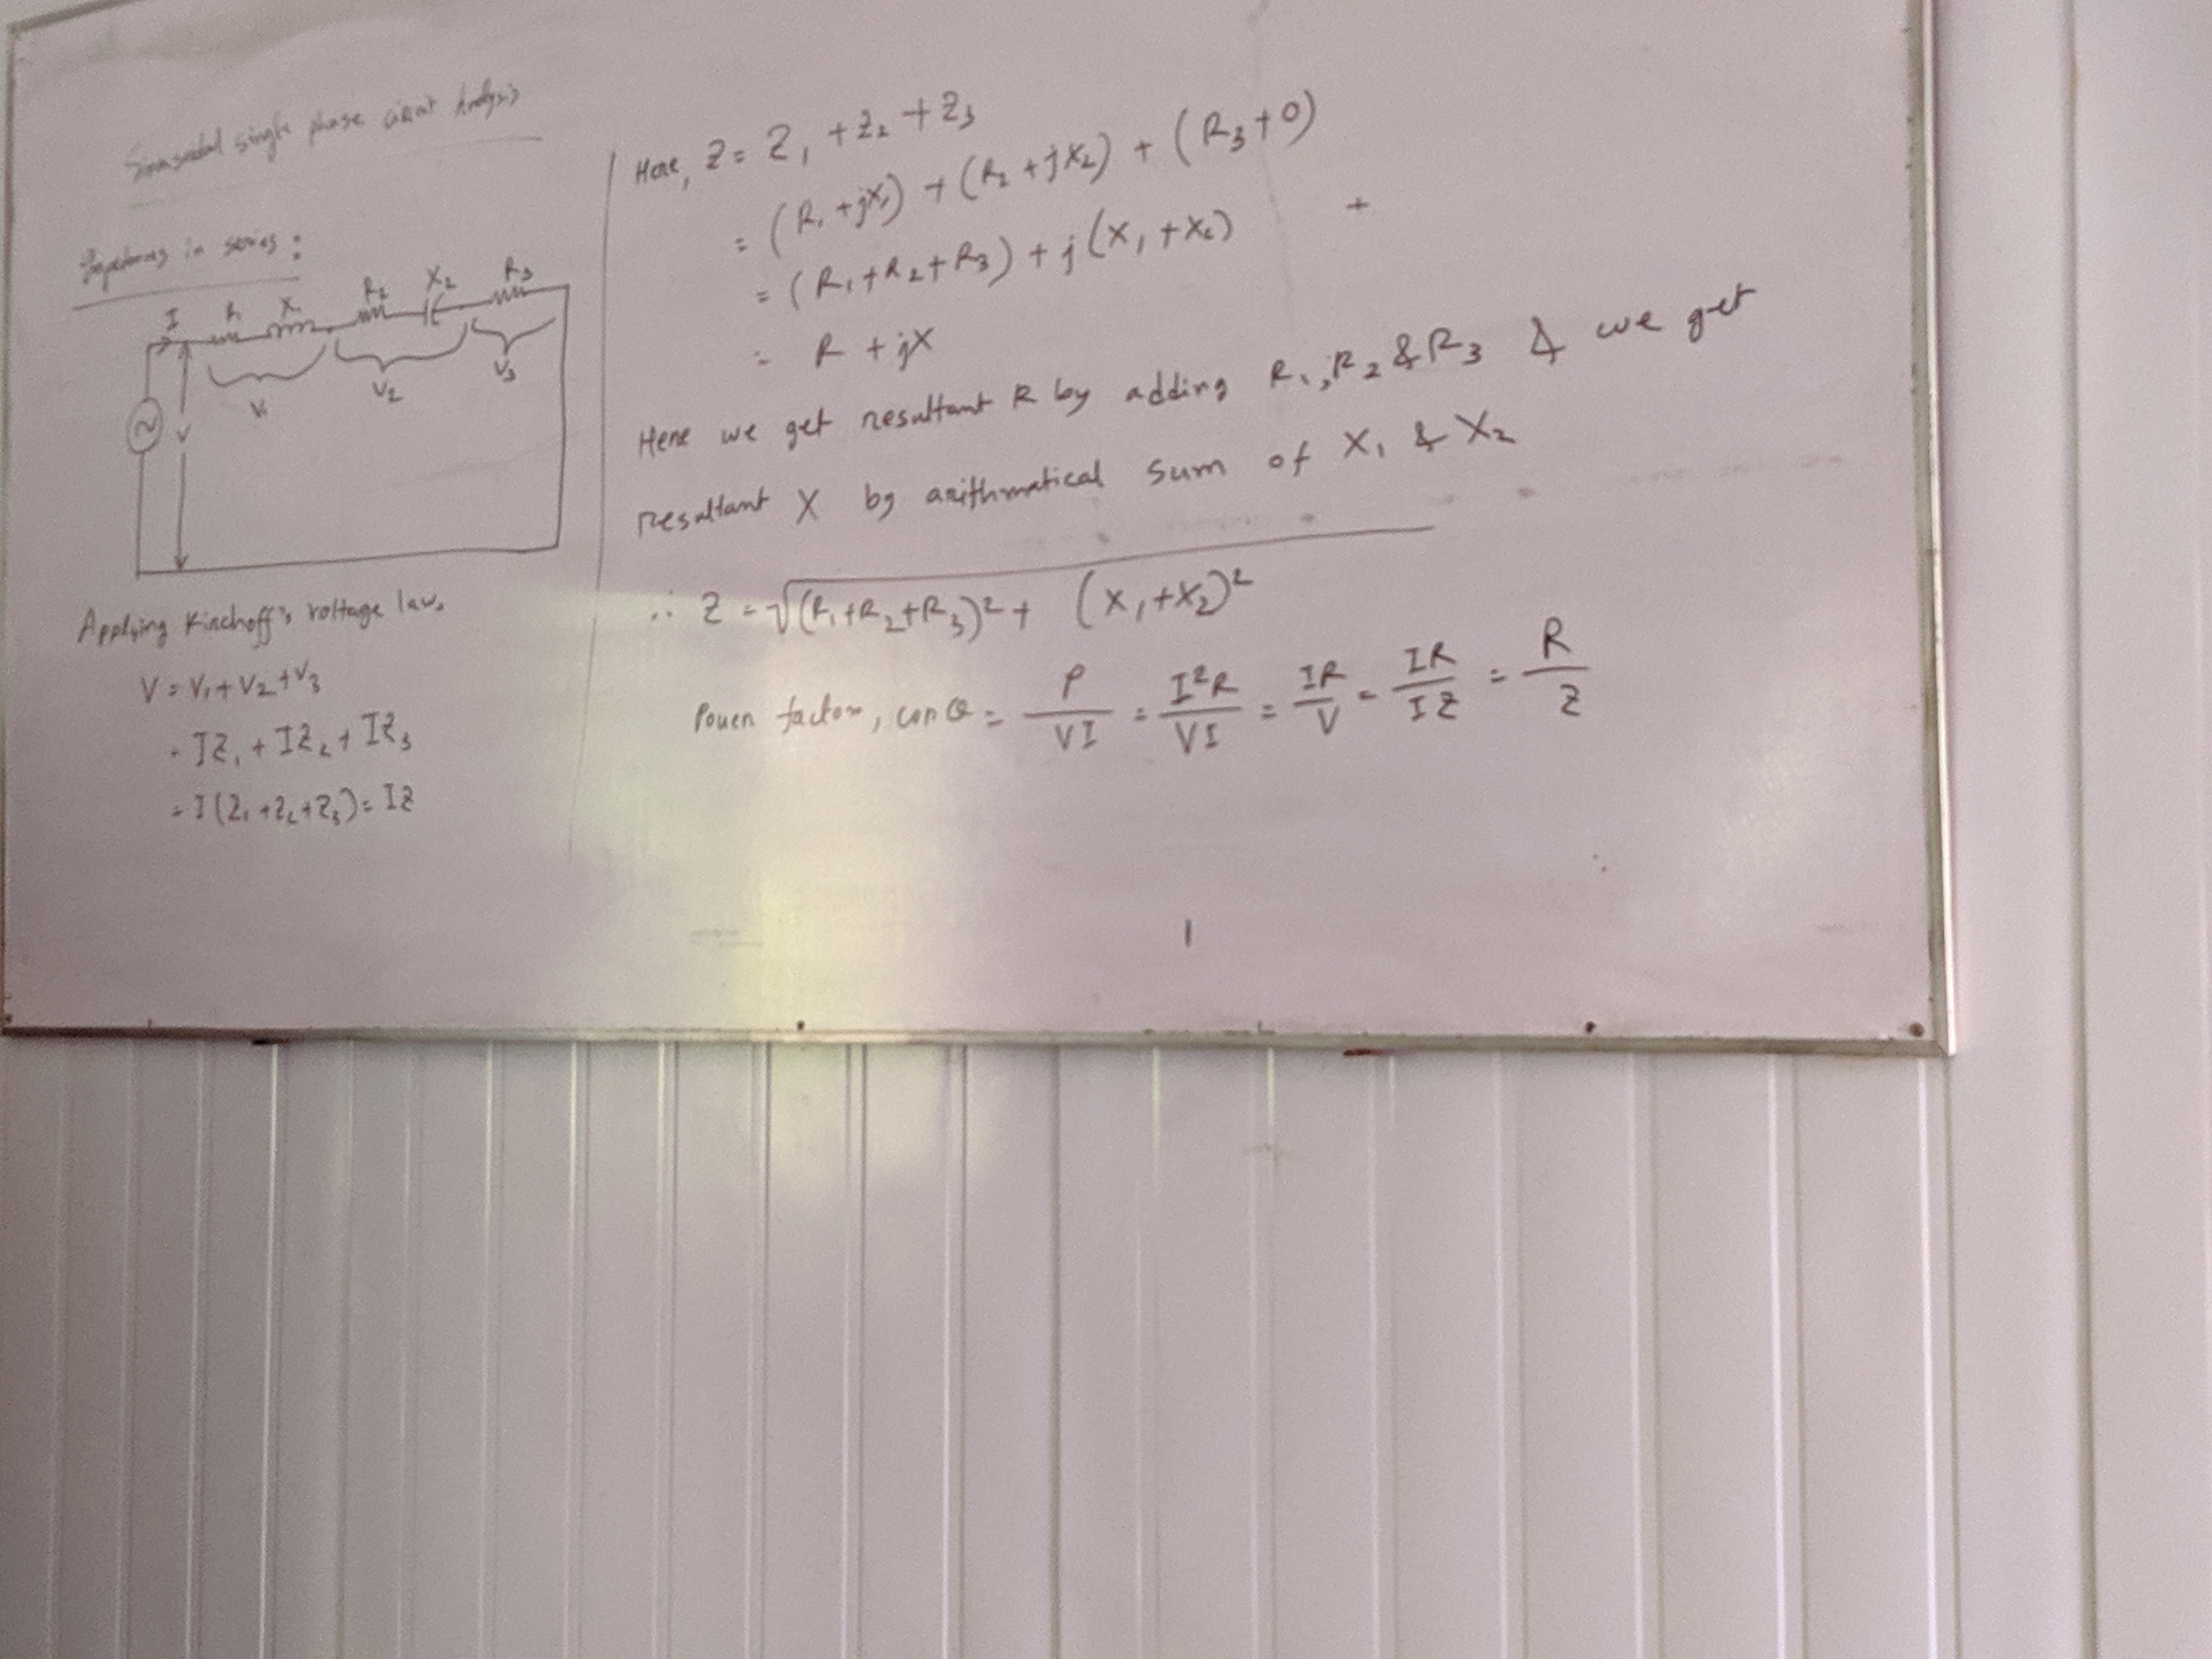 Sinusoidal single phase circuit Analysis
Impedances in series :
I R₁ X₁ R₂ X₂ R₃
V₁ V₂ V₃
V
Applying Kirchoff's voltage law,
V = V₁ + V₂ + V₃
= IZ₁ + IZ₂ + IZ₃
= I(Z₁ + Z₂ + Z₃) = IZ
Here, Z = Z₁ + Z₂ + Z₃
= (R₁ + jX₁) + (R₂ + jX₂) + (R₃ + 0)
= (R₁ + R₂ + R₃) + j(X₁ + X₂) +
= R + jX
Here we get resultant R by adding R₁, R₂ & R₃ & we get
resultant X by arithmatical sum of X₁ & X₂
∴ Z = √(R₁+R₂+R₃)² + (X₁+X₂)²
Power factor, cos θ = P/VI = I²R/VI = IR/V = IR/IZ = R/Z